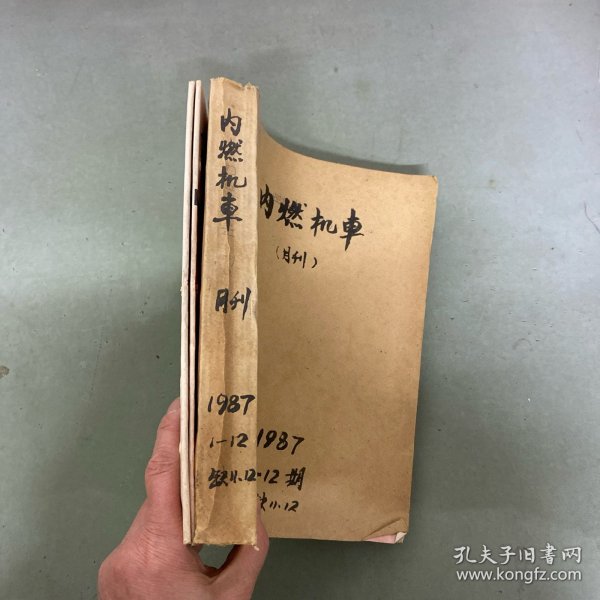 内燃机車
月刊
1987
1-12
缺11.12
内燃机車
(月刊)
1987
1-12期
缺11.12
孔夫子旧書网
www.kongfz.com